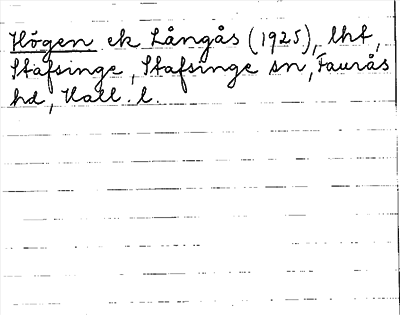 Högen ek Långås (1925), lht,
Stafsinge, Stafsinge sn, Faurås
hd, Hall. l.